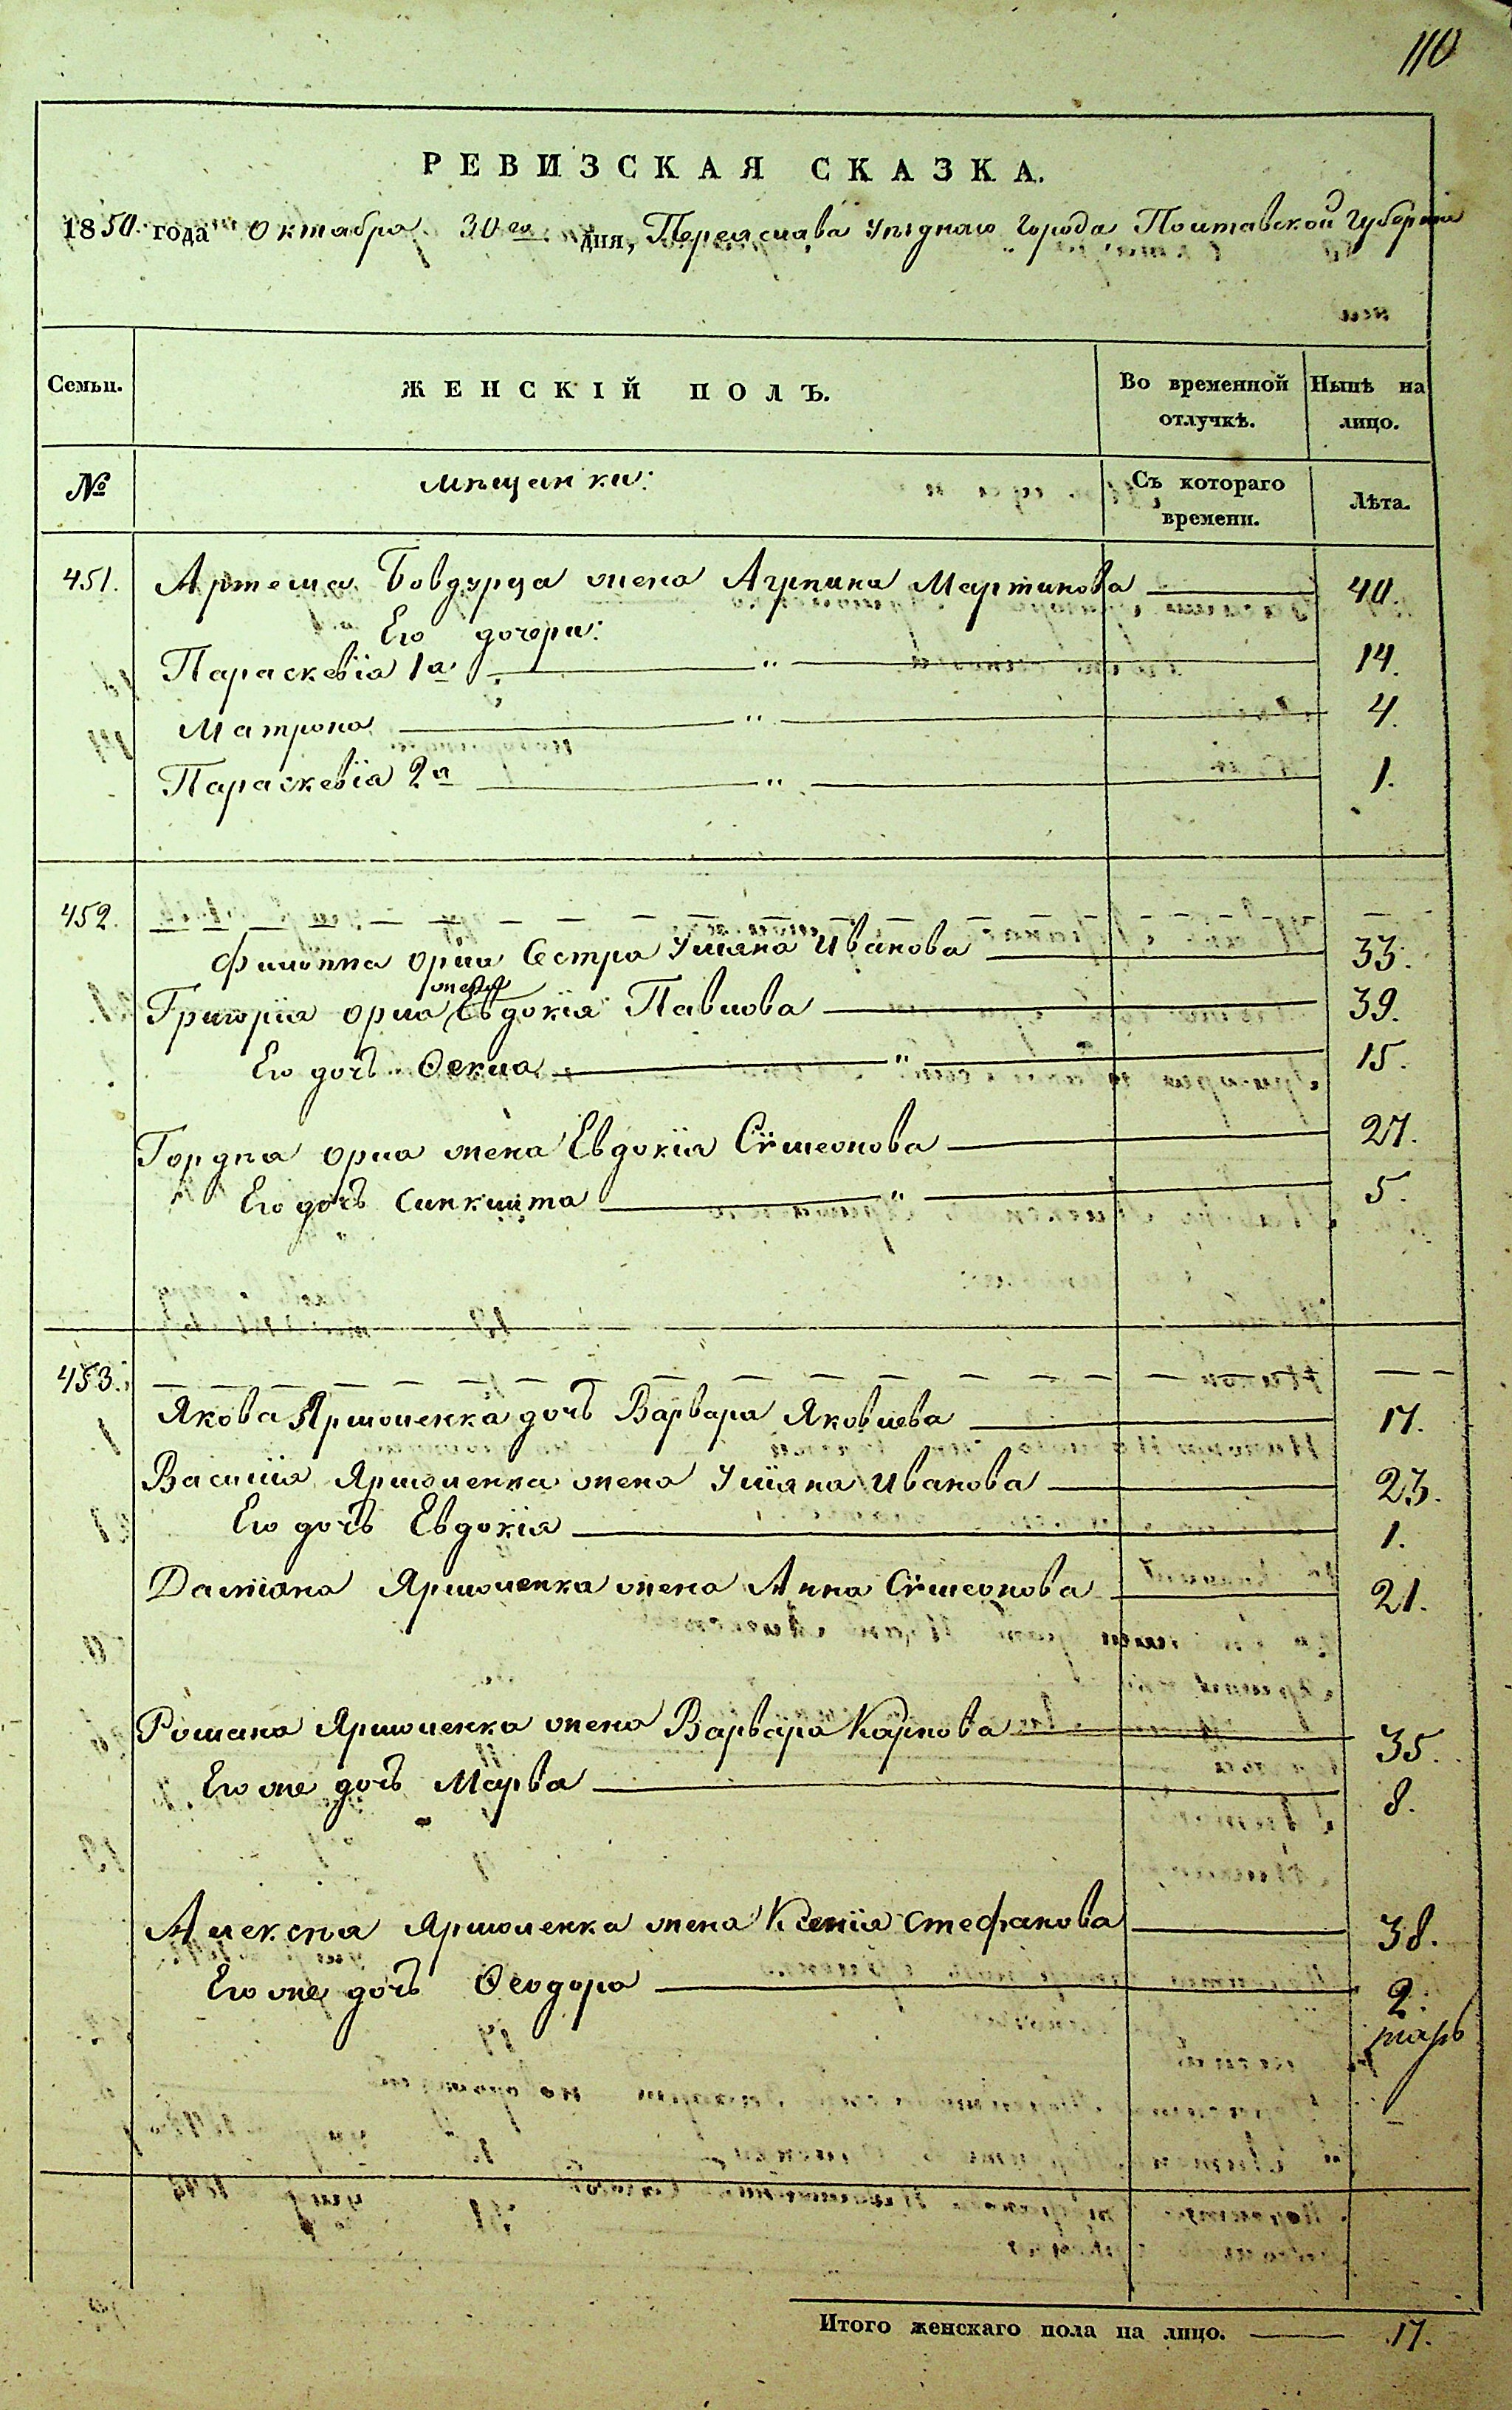 110
РЕВИЗСКАЯ СКАЗКА.
1850. года Октября 30го дня, Переяслава уѣзднаго города Полтавской Губерніи
Семьи.
ЖЕНСКІЙ ПОЛЪ.
Во временной отлучкѣ.
Нынѣ на лицо.
№
мѣщанки:
Съ котораго времени.
Лѣта.
451. Артема Бовдурца жена Агрипина Мартинова 40.
Его дочери:
Параскевія 1я " 14.
Матрона " 4.
Параскевія 2я " 1.
452.
Филиппа Орла Сестра Уліяна Иванова 33.
Григорія Орла жена Евдокія Павлова 39.
Его дочь Өекла " 15.
Гордѣя Орла жена Евдокія Сѵмеонова 27.
Его дочь Синклита " 5.
453.
Якова Ярмоленка дочь Варвара Яковлева 17.
Василія Ярмоленка жена Уліяна Иванова 23.
Его дочь Евдокія 1.
Даміана Ярмоленка жена Анна Сѵмеонова 21.
Романа Ярмоленка жена Варвара Карпова 35.
Его же дочь Марѳа 8.
Алексѣя Ярмоленка жена Ксенія Стефанова 38.
Его же дочь Өеодора 2.
Итого женскаго пола на лицо. 17.